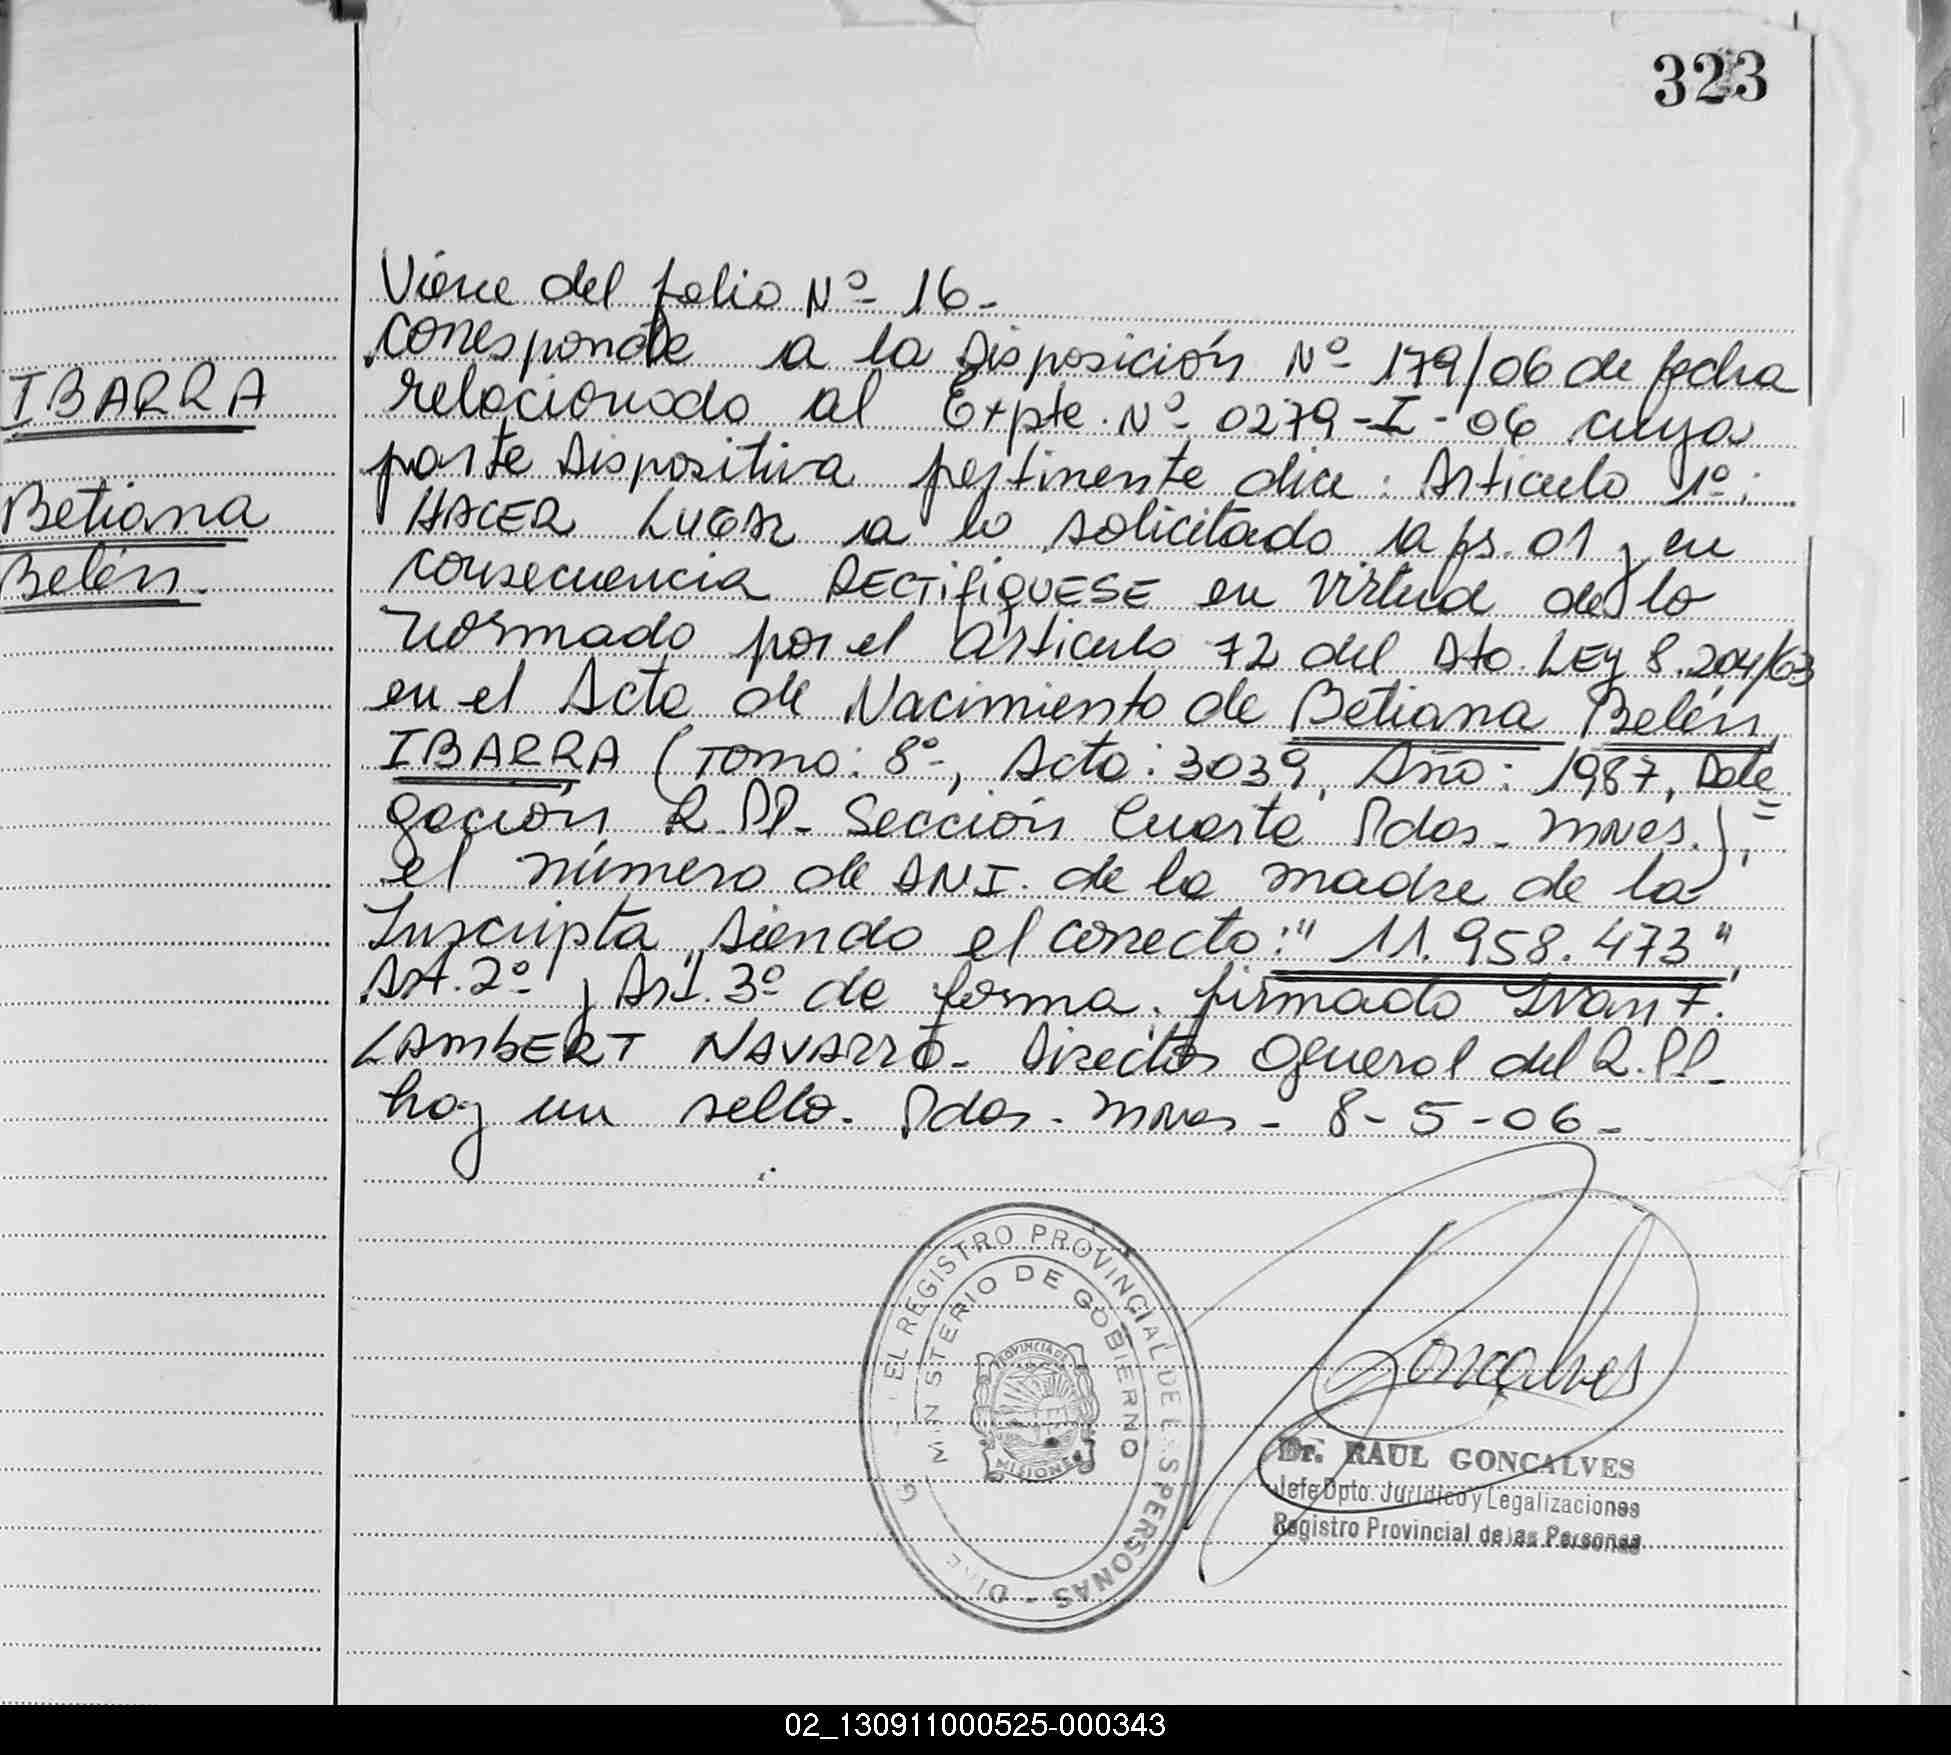 323
IBARRA
Betiana
Belén.
Viene del folio Nº 16-
corresponde a la Disposición Nº 179/06 de fecha
relacionado al Expte. Nº 0279-I-06 cuya
parte Dispositiva pertinente dice: Articulo 1º:
HACER LUGAR a lo solicitado a fs. 01 y en
consecuencia RECTIFIQUESE en virtud de lo
normado por el articulo 72 del Dto. LEy 8.204/63
en el Acta de Nacimiento de Betiana Belén
IBARRA (Tomo: 8º, Acta: 3039, Año: 1987, Dele
gación R.PP- Sección Cuarta Pdas- mnes.),
el número de DNI. de la madre de la
Inscripta, siendo el correcto: "11.958.473",
Art. 2º y Art. 3º de forma. firmado Ivan F.
LAMBERT NAVARRO- Director General del R.PP-
hay un sello. Pdas- mnes- 8-5-06-
EL REGISTRO PROVINCIAL DE LAS PERSONAS - DIRE
MINISTERIO DE GOBIERNO
PROVINCIA DE
MISIONES
Goncalves
Dr. RAUL GONCALVES
Jefe Dpto. Jurídico y Legalizaciones
Registro Provincial de las Personas
02_130911000525-000343